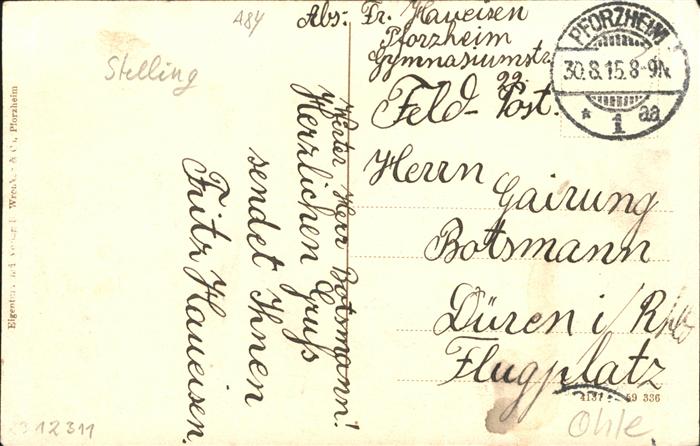 A84
Stelling
Abs: Fr. Haueisen
Pforzheim
Gymnasiumstr.
22.
Feld-Post.
PFORZHEIM
30.8.15.8-9N.
* 1 aa
Herrn
Gairung
Botsmann
Düren i/R
Flugplatz
Werter Herr Botsmann!
Herzlichen Gruß
sendet Ihnen
Fritz Haueisen.
Eigentum und Verlag & Co, Pforzheim
4137 59 336
Ohle
12311